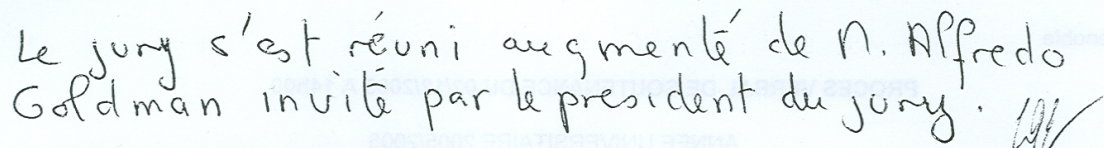 Le jury s'est réuni augmenté de M. Alfredo
Goldman invité par le président du jury.